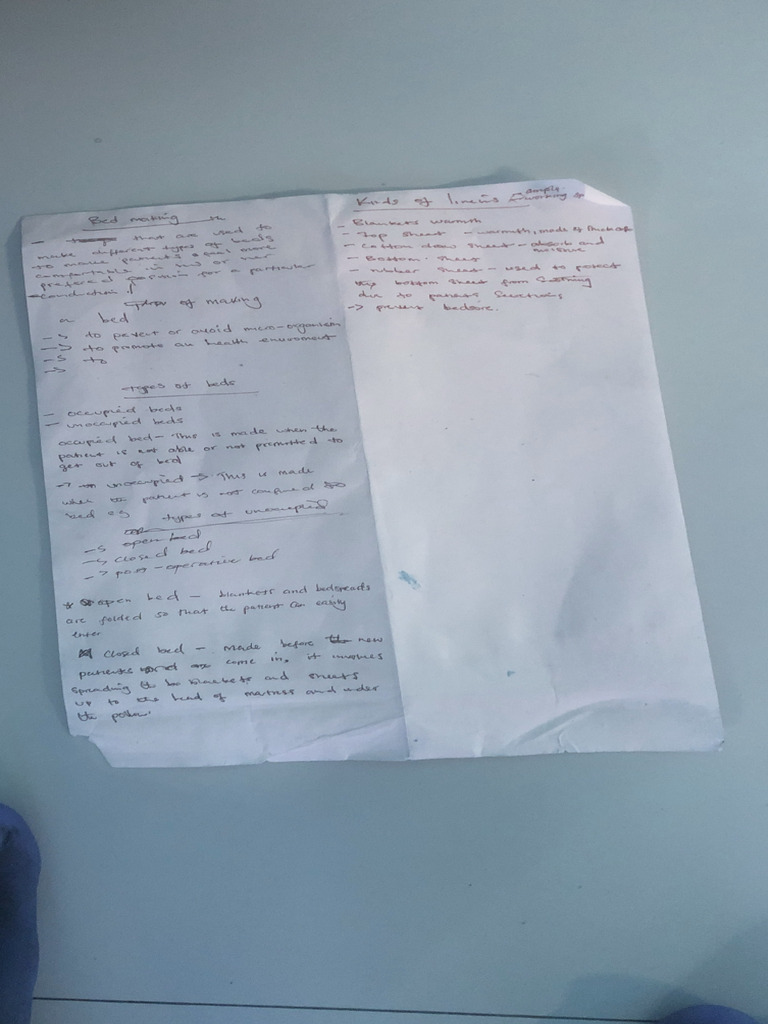 Bed making
that are used to
make different types of beds
to make patients feel more
comfortable in his or her
prefered position for a particular
condition
of making
a bed
-> to pevert or avoid micro-organism
-> to promote an health enviroment
-> to
->
types of beds
- occupied beds
- unoccupied beds
occupied bed - This is made when the
patient is not able or not premitted to
get out of bed
-> unoccupied -> This is made
when the patient is not confined to
bed eg
types of unoccupied
-> open bed
-> closed bed
-> post-operative bed
* open bed - blankets and bedspreads
are folded so that the patient can easily
enter
closed bed - made before new
patients come in. it involves
spreading the blankets and sheets
up to the head of matress and under
the pillow.
Kinds of linens
- Blankets warmth
- Top sheet - warmth, made of
- Cotton draw sheet - absorb and
- Bottom sheet
- rubber sheet - used to protect
the bottom sheet from
due to patients
-> prevent bedsore.